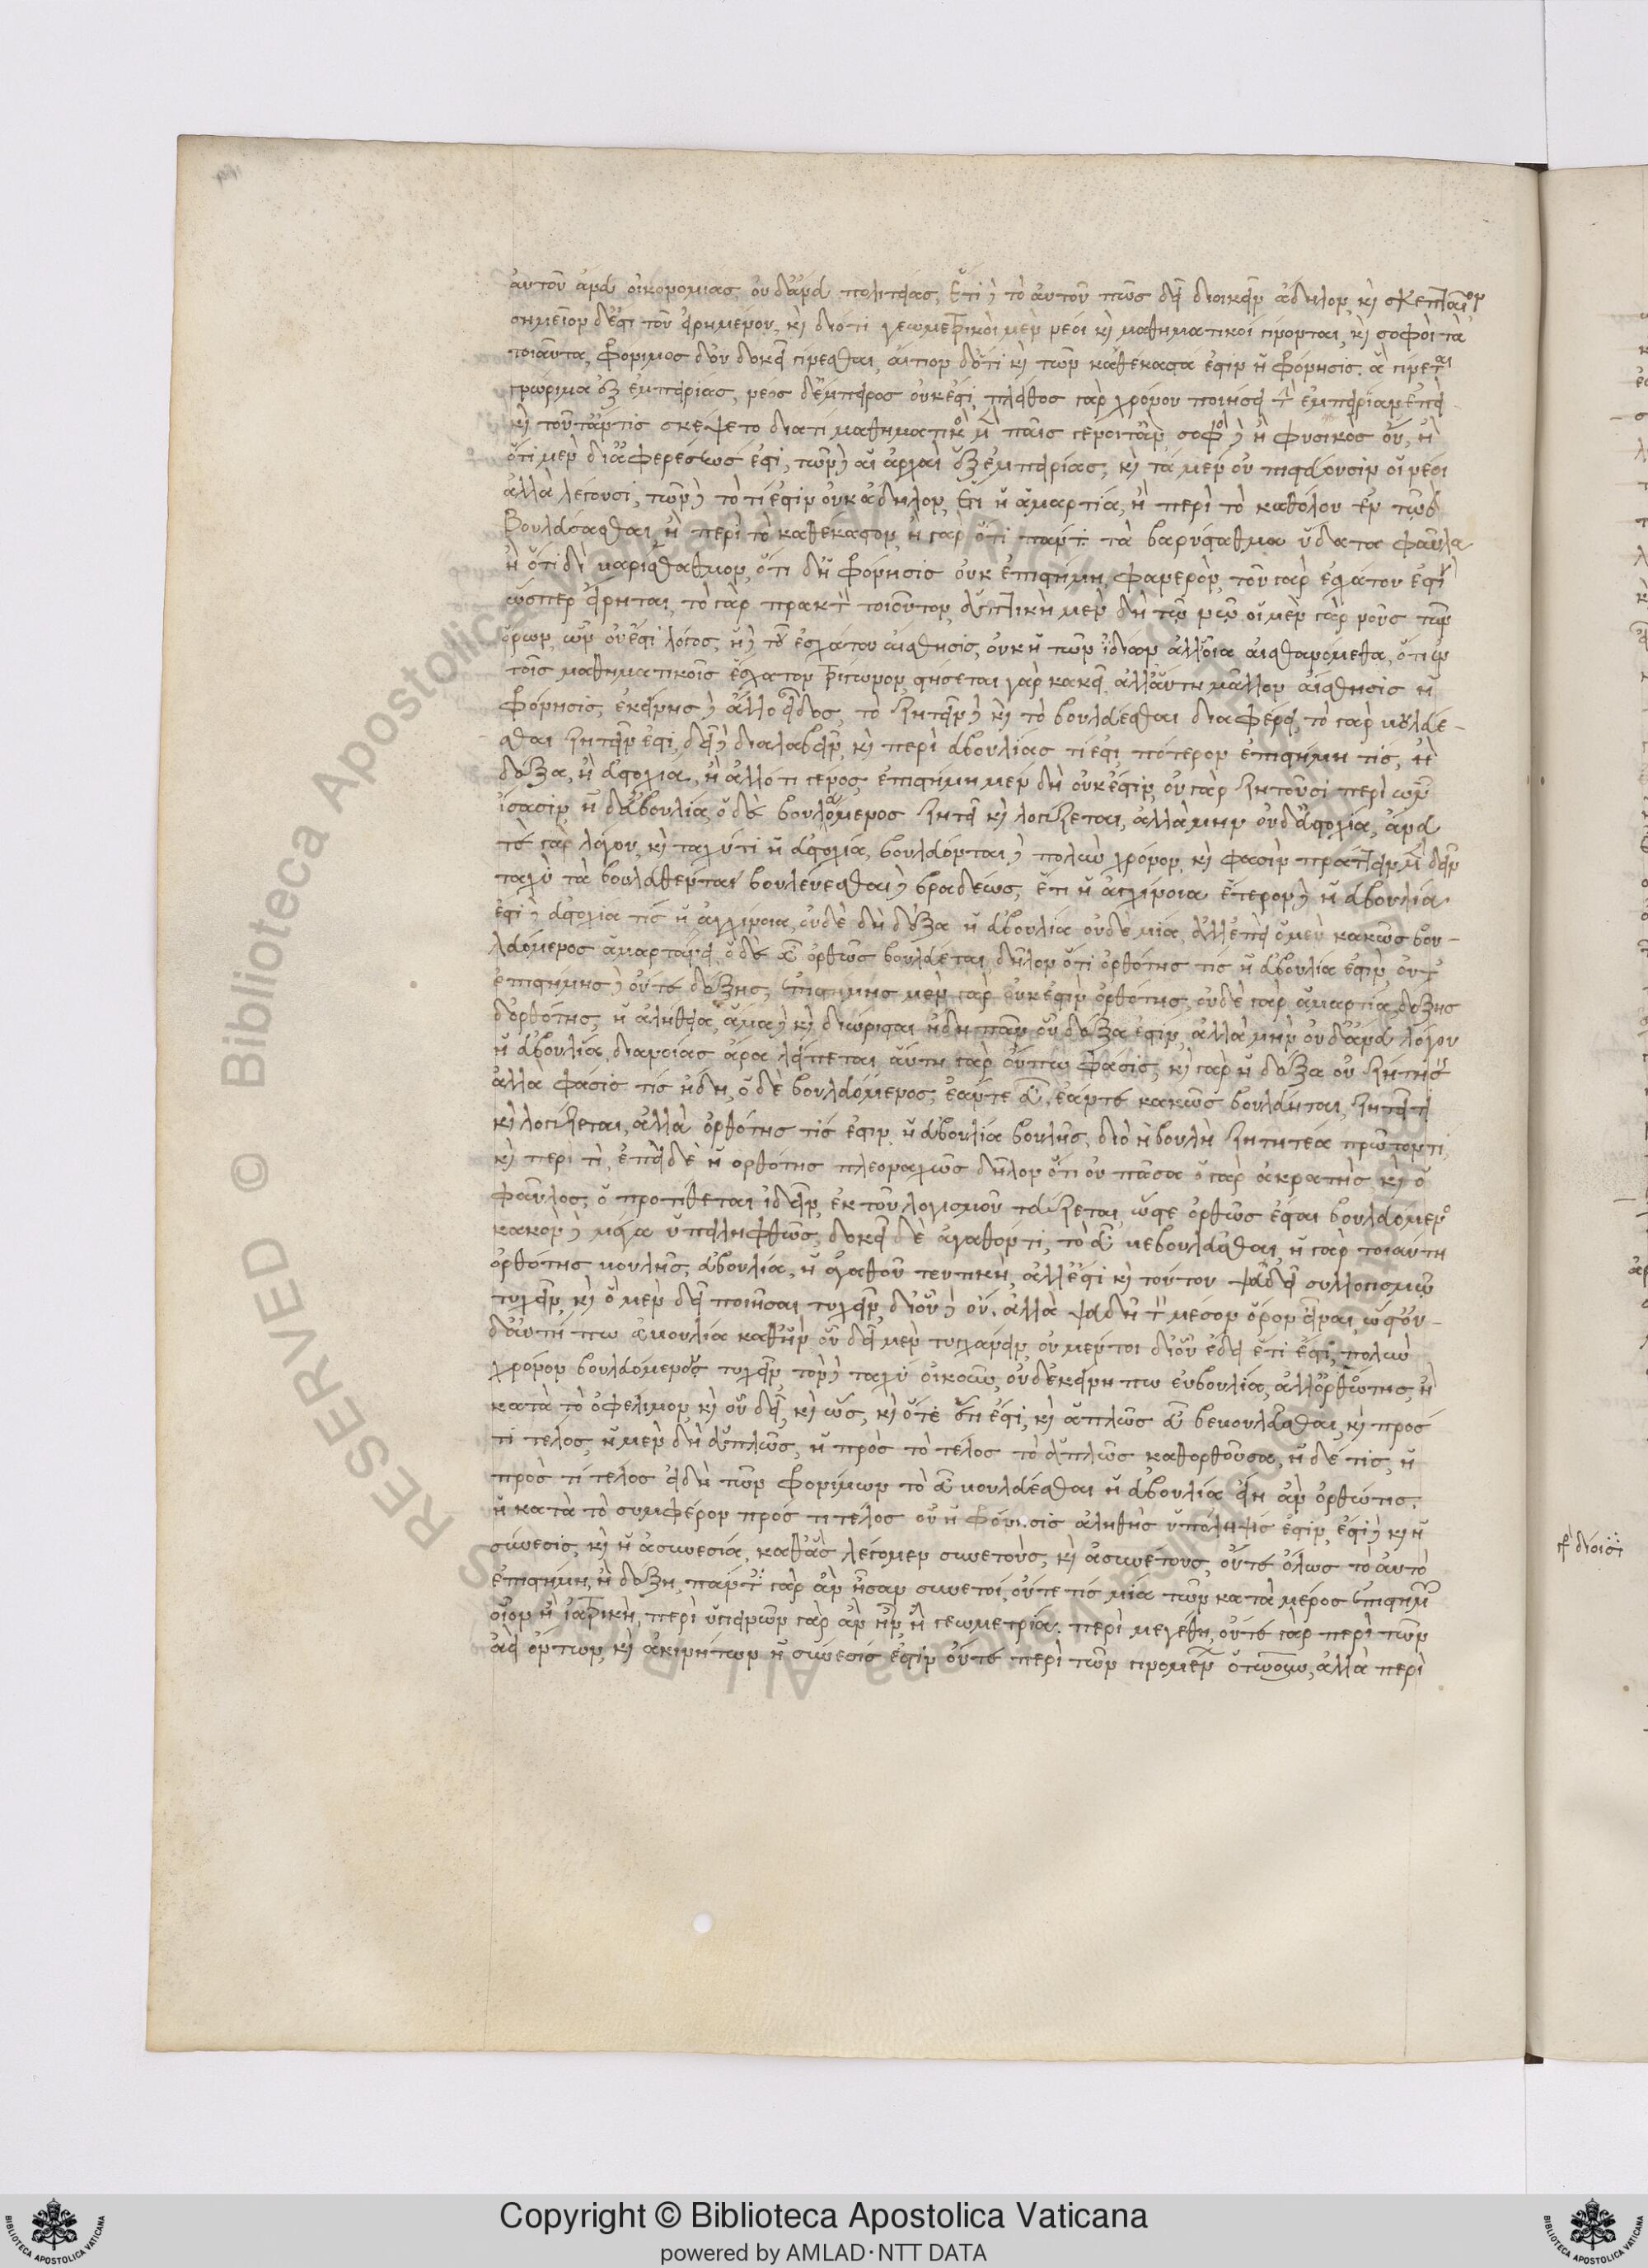 αὐτοῦ ἄνευ οἰκονομίας, οὐδ' ἄνευ πολιτείας, ἔτι δὲ τὸ αὐτοῦ πῶς δεῖ διοικεῖν ἄδηλον, καὶ σκεπτέον
σημεῖον δ' ἐστι τοῦ εἰρημένου, καὶ διότι γεωμετρικοὶ μὲν νέοι καὶ μαθηματικοί γίνονται, καὶ σοφοὶ τὰ
τοιαῦτα, φρόνιμος δ' οὐ δοκεῖ γίνεσθαι, αἴτιον δ' ὅτι καὶ τῶν καθέκαστα ἐστιν ἡ φρόνησις. ἃ γίνεται
γνώριμα ἐξ ἐμπειρίας, νέος δ' ἔμπειρος οὐκ ἔστι, πλῆθος γὰρ χρόνου ποιήσει τὴν ἐμπειρίαν, ἐπεὶ
καὶ τοῦτ' ἄν τις σκέψετο διατί μαθηματικὸς μὲν παῖς γένοιτ' ἂν, σοφὸς δὲ ἢ φυσικὸς οὔ, ἢ
ὅτι μὲν δι' ἀφερέσεώς ἐστι, τῶν δὲ αἱ ἀρχαὶ ἐξ ἐμπειρίας, καὶ τὰ μὲν οὐ πιστεύουσιν οἱ νέοι
ἀλλὰ λέγουσι, τῶν δὲ τὸ τί ἐστιν οὐκ ἄδηλον, ἔτι ἡ ἁμαρτία, ἢ περὶ τὸ καθόλου ἐν τῷ
βουλεύσασθαι, ἢ περὶ τὸ καθέκαστον, ἢ γὰρ ὅτι πάντα τὰ βαρύσταθμα ὕδατα φαῦλα
ἢ ὅτι δὶ βαρύσταθμον, ὅτι δ' ἡ φρόνησις οὐκ ἐπιστήμη, φανερὸν, τοῦ γὰρ ἐσχάτου ἐστὶ
ὥσπερ εἴρηται, τὸ γὰρ πρακτὸν τοιοῦτον, ἀντικὴ μὲν δὴ τῷ νῷ, οἱ μὲν γὰρ νοῦς τῶν
ὅρων, ὧν οὐκ ἔστι λόγος, ἡ δὲ τοῦ ἐσχάτου αἴσθησις, οὐχ ἡ τῶν ἰδίων ἀλλ' οἵα αἰσθανόμεθα, ὅτι ἐν
τοῖς μαθηματικοῖς ἔσχατον τρίγωνον, στήσεται γὰρ κακεῖ, ἀλλ' αὕτη μᾶλλον αἴσθησις ἡ
φρόνησις, ἐκείνης δὲ ἄλλο εἶδος, τὸ ζητεῖν δὲ καὶ τὸ βουλεύεσθαι διαφέρει, τὸ γὰρ βουλεύε-
σθαι ζητεῖν ἐστι, δεῖ δὲ διαλαβεῖν, καὶ περὶ εὐβουλίας τί ἐστι, πότερον ἐπιστήμη τίς, ἢ
δόξα, ἢ εὐστοχία, ἢ ἄλλό τι γένος, ἐπιστήμη μὲν δὴ οὐκ ἔστιν, οὐ γὰρ ζητοῦσι περὶ ὧν
ἴσασιν, ἡ δ' εὐβουλία, ὁ δὲ βουλευόμενος ζητεῖ καὶ λογίζεται, ἀλλὰ μὴν οὐδ' εὐστοχία, ἄνευ
τε γὰρ λόγου, καὶ ταχύ τι ἡ εὐστοχία, βουλεύονται δὲ πολὺν χρόνον, καὶ φασὶν πράττειν μὲν δεῖν
ταχὺ τὰ βουλευθέντα βουλεύεσθαι δὲ βραδέως, ἔτι ἡ ἀγχίνοια ἕτερον δὲ ἡ εὐβουλία,
ἐστὶ δὲ εὐστοχία τίς ἡ ἀγχίνοια, οὐδὲ δὴ δόξα ἡ εὐβουλία οὐδὲ μία, ἀλλ' ἐπεὶ ὁ μὲν κακῶς βου-
λευόμενος ἁμαρτάνει, ὁ δὲ εὖ ὀρθῶς βουλεύεται, δῆλον ὅτι ὀρθότης τίς ἡ εὐβουλία ἐστὶν, οὔτε
ἐπιστήμης δὲ οὔτε δόξης, ἐπιστήμης μὲν γὰρ οὐκ ἔστιν ὀρθότης, οὐδὲ γὰρ ἁμαρτία, δόξης
δ' ὀρθότης, ἡ ἀλήθεια, ἅμα δὲ καὶ διώρισται ἤδη πᾶν οὗ δόξα ἐστιν, ἀλλὰ μὴν οὐδ' ἄνευ λόγου
ἡ εὐβουλία, διανοίας ἄρα λείπεται, αὕτη γὰρ οὔπω φάσις, καὶ γὰρ ἡ δόξα οὐ ζήτησις
ἀλλὰ φάσις τίς ἤδη, ὁ δὲ βουλευόμενος, ἐάντε εὖ, ἐάντε κακῶς βουλεύηται, ζητεῖ τι
καὶ λογίζεται, ἀλλὰ ὀρθότης τίς ἐστιν ἡ εὐβουλία βουλῆς, διὸ ἡ βουλὴ ζητητέα πρῶτον τί,
καὶ περὶ τί, ἐπεὶ δὲ ἡ ὀρθότης πλεοναχῶς δῆλον ὅτι οὐ πᾶσα ὁ γὰρ ἀκρατὴς καὶ ὁ
φαῦλος, ὃ προτίθεται ἰδεῖν, ἐκ τοῦ λογισμοῦ τεύξεται, ὥστε ὀρθῶς ἔσται βουλευόμενος
κακὸν δὲ μέγα ὑπειληφθῶς, δοκεῖ δὲ ἀγαθόν τι, τὸ εὖ βεβουλεῦσθαι, ἡ γὰρ τοιαύτη
ὀρθότης βουλῆς, εὐβουλία, ἡ ἀγαθοῦ τευτικὴ, ἀλλ' ἔστι καὶ τούτου ψευδεῖ συλλογισμῷ
τυχεῖν, καὶ ὃ μὲν δεῖ ποιῆσαι τυχεῖν, δι' οὗ δὲ οὔ, ἀλλὰ ψευδῆ τὸν μέσον ὅρον εἶναι, ὥστ' οὐ-
δ' αὕτη πω εὐβουλία καθ' ἣν οὗ δεῖ μὲν τυγχάνειν, οὐ μέντοι δι' οὗ ἔδει ἔτι ἐστι, πολὺν
χρόνον βουλευόμενος τυχεῖν τὸν δὲ ταχὺ οὐκοῦν, οὐδ' ἐκείνη πω εὐβουλία, ἀλλ' ὀρθότης, ἡ
κατὰ τὸ ὀφέλιμον καὶ οὗ δεῖ, καὶ ὡς, καὶ ὅτε ἔτι ἐστι, καὶ ἁπλῶς εὖ βεβουλεῦσθαι, καὶ πρός
τι τέλος, ἡ μὲν δὴ ἁπλῶς, ἡ πρὸς τὸ τέλος τὸ ἁπλῶς κατορθοῦσα, ἡ δέ τις, ἡ
πρὸς τί τέλος εἰ δὴ τῶν φρονίμων τὸ εὖ βουλεύεσθαι ἡ εὐβουλία εἴη ἂν ὀρθώτης,
ἡ κατὰ τὸ συμφέρον πρός τι τέλος οὗ ἡ φρόνησις ἀληθὴς ὑπόληψίς ἐστιν, ἔστι δὲ καὶ ἡ
σύνεσις, καὶ ἡ ἀσυνεσία, καθ' ἃς λέγομεν συνετοὺς, καὶ ἀσυνέτους, οὔτε ὅλως τὸ αὐτὸ
ἐπιστήμη, ἢ δόξη, πάντες γὰρ ἂν ἦσαν συνετοί, οὔτε τίς μία τῶν κατὰ μέρος ἐπιστημῶν
οἷον ἡ ἰατρικὴ, περὶ ὑγιεινῶν γὰρ ἂν ἦν, ἢ γεωμετρία. περὶ μεγέθη, οὔτε γὰρ περὶ τῶν
ἀεὶ ὄντων, καὶ ἀκινήτων ἡ σύνεσίς ἐστιν οὔτε περὶ τῶν γινομένων ὁτουοῦν, ἀλλὰ περὶ